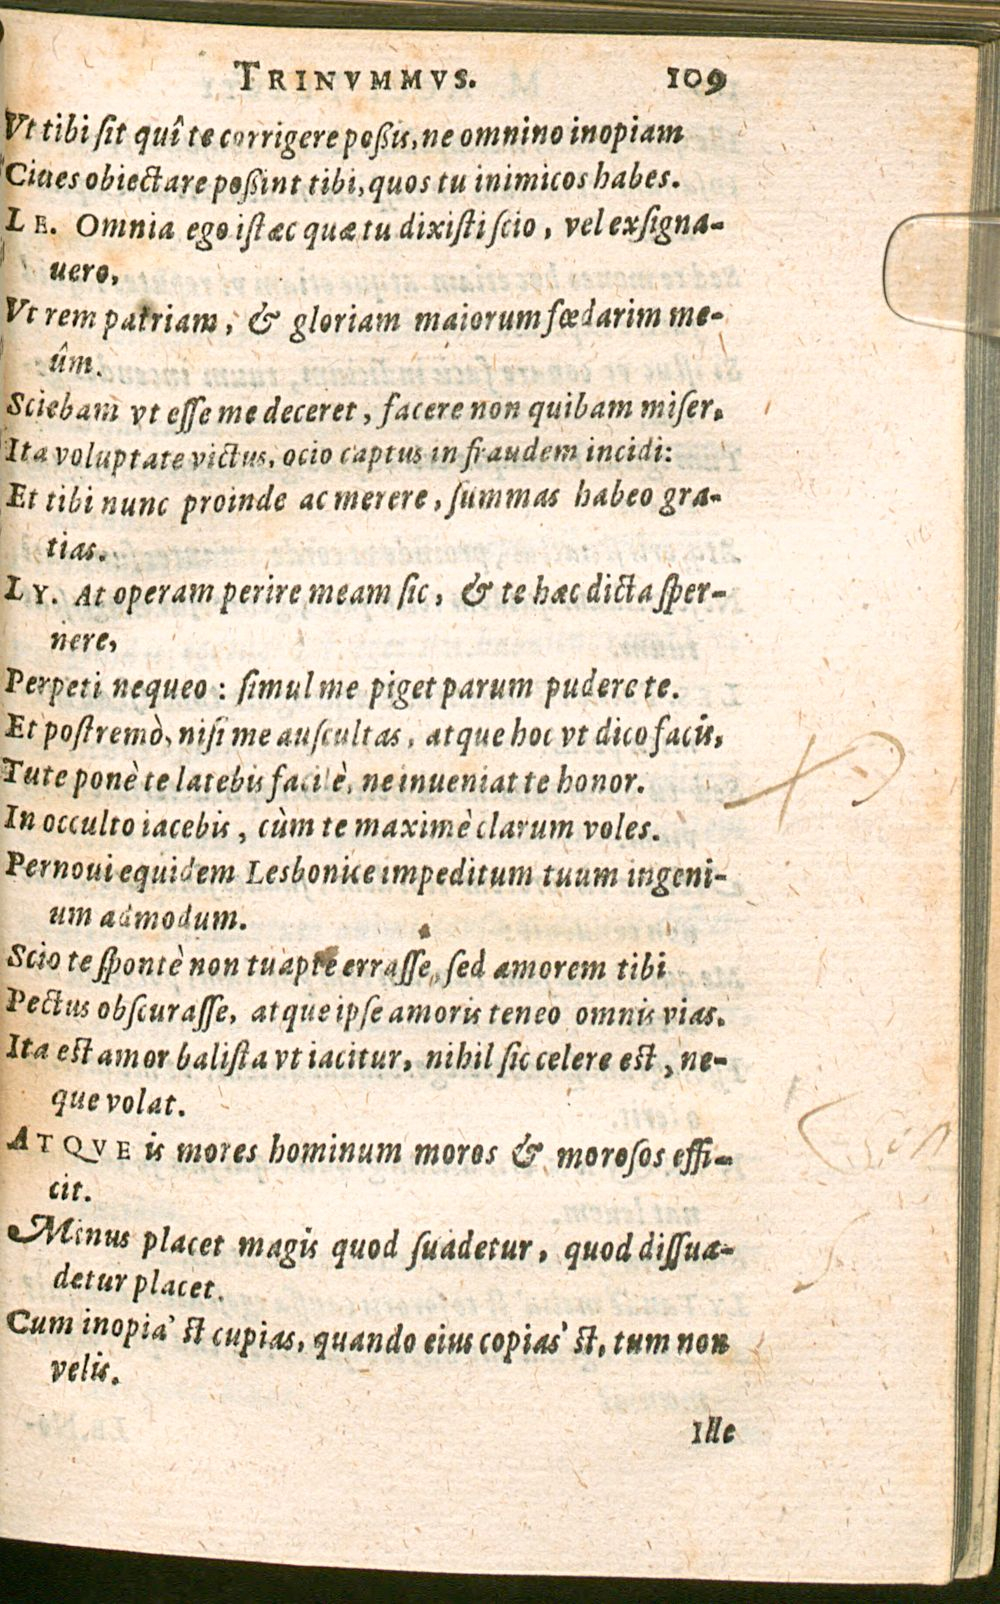 TRINVMMVS. 109
Vt tibi ſit quî te corrigere poßis, ne omnino inopiam
Ciues obiectare poßint tibi, quos tu inimicos habes.
LE. Omnia ego iſtæc quæ tu dixiſti ſcio, vel exſigna-
uero,
Vt rem patriam, & gloriam maiorum fœdarim me-
ûm.
Sciebam vt eſſe me deceret, facere non quibam miſer.
Ita voluptate victus, ocio captus in fraudem incidi:
Et tibi nunc proinde ac merere, ſummas habeo gra-
tias.
LY. At operam perire meam ſic, & te hæc dicta ſper-
nere,
Perpeti nequeo: ſimul me piget parum pudere te.
Et poſtremò, niſi me auſcultas, atque hoc vt dico facis,
Tute ponè te latebis facilè, ne inueniat te honor.
In occulto iacebis, cùm te maximè clarum voles.
Pernoui equidem Lesbonice impeditum tuum ingeni-
um admodum.
Scio te ſpontè non tuapte erraſſe, ſed amorem tibi
Pectus obſcuraſſe, atque ipſe amoris teneo omnis vias.
Ita eſt amor baliſta vt iacitur, nihil ſic celere eſt, ne-
que volat.
ATQVE is mores hominum moros & moroſos effi-
cit.
Minus placet magis quod ſuadetur, quod diſſua-
detur placet.
Cum inopia' ſt cupias, quando eius copias' ſt, tum non
velis.
Ille